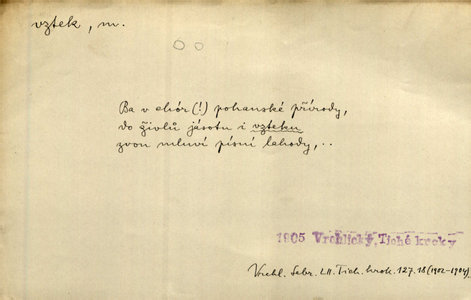 vztek, m.
Ba v chór(!) pohanské přírody,
do živlů jásotu i vzteku
zvon mluví písní lahody,..
1905 Vrchlický, Tiché kroky
Vrchl. Sebr. LII. Tich. krok. 127. 18 (1902-1904)